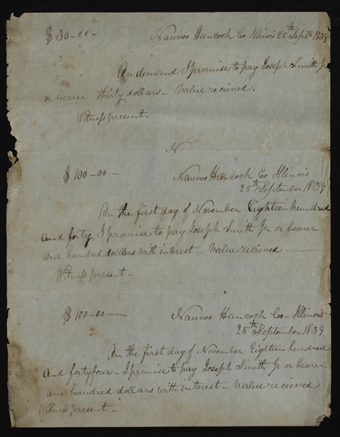 $30-00- Nauvoo Hancock Co Illinois 25th Sept. 1839
On demand I promise to pay Joseph Smith Jr
or bearer thirty dollars - Value recieved.
Witness present.
N
$100-00- Nauvoo Hancock Co Illinois
25th September 1839
On the first day of November Eighteen hundred
and forty, I promise to pay Joseph Smith Jr or bearer
one hundred dollars with interest - Value recieved
Witness present -
$100-00- Nauvoo Hancock Co - Illinois
25th September 1839
On the first day of November Eighteen hundred
And fortyfour - I promise to pay Joseph Smith Jr or bearer
one hundred dollars with interest - Value recieved
Witness present. -